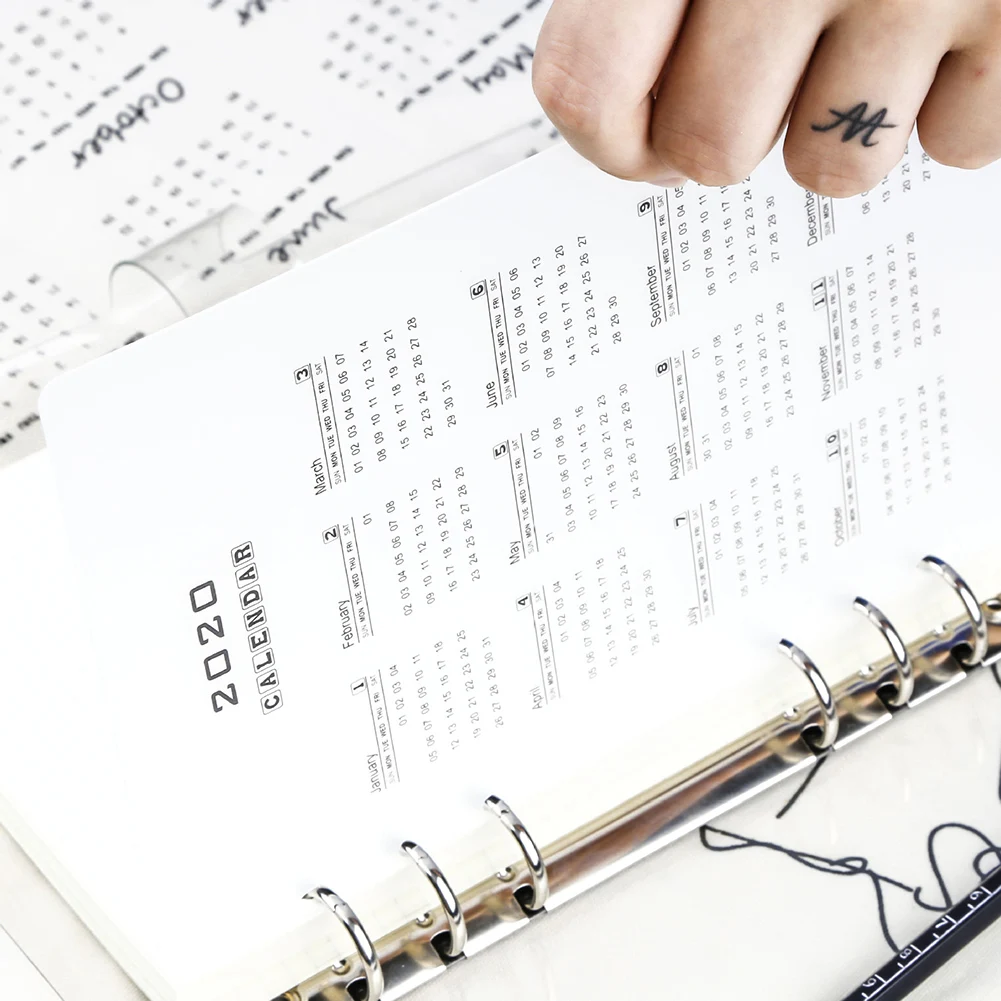 October
May
June
M
2020
CALENDAR
January 1
SUN MON TUE WED THU FRI SAT
01 02 03 04
05 06 07 08 09 10 11
12 13 14 15 16 17 18
19 20 21 22 23 24 25
26 27 28 29 30 31
February 2
SUN MON TUE WED THU FRI SAT
01
02 03 04 05 06 07 08
09 10 11 12 13 14 15
16 17 18 19 20 21 22
23 24 25 26 27 28 29
March 3
SUN MON TUE WED THU FRI SAT
01 02 03 04 05 06 07
08 09 10 11 12 13 14
15 16 17 18 19 20 21
22 23 24 25 26 27 28
29 30 31
April 4
SUN MON TUE WED THU FRI SAT
01 02 03 04
05 06 07 08 09 10 11
12 13 14 15 16 17 18
19 20 21 22 23 24 25
26 27 28 29 30
May 5
SUN MON TUE WED THU FRI SAT
31 01 02
03 04 05 06 07 08 09
10 11 12 13 14 15 16
17 18 19 20 21 22 23
24 25 26 27 28 29 30
June 6
SUN MON TUE WED THU FRI SAT
01 02 03 04 05 06
07 08 09 10 11 12 13
14 15 16 17 18 19 20
21 22 23 24 25 26 27
28 29 30
July 7
SUN MON TUE WED THU FRI SAT
01 02 03 04
05 06 07 08 09 10 11
12 13 14 15 16 17 18
19 20 21 22 23 24 25
26 27 28 29 30 31
August 8
SUN MON TUE WED THU FRI SAT
30 31 01
02 03 04 05 06 07 08
09 10 11 12 13 14 15
16 17 18 19 20 21 22
23 24 25 26 27 28 29
September 9
SUN MON TUE WED THU FRI SAT
01 02 03 04 05
06 07 08 09 10 11
13 14 15 16 17
20 21 22 23 24
27 28 29 30
October 10
SUN MON TUE WED THU FRI SAT
November 11
SUN MON TUE WED THU FRI SAT
01 02 03 04 05 06 07
08 09 10 11 12 13 14
15 16 17 18 19 20 21
22 23 24 25 26 27 28
29 30
December
SUN MON
06
20 21
27